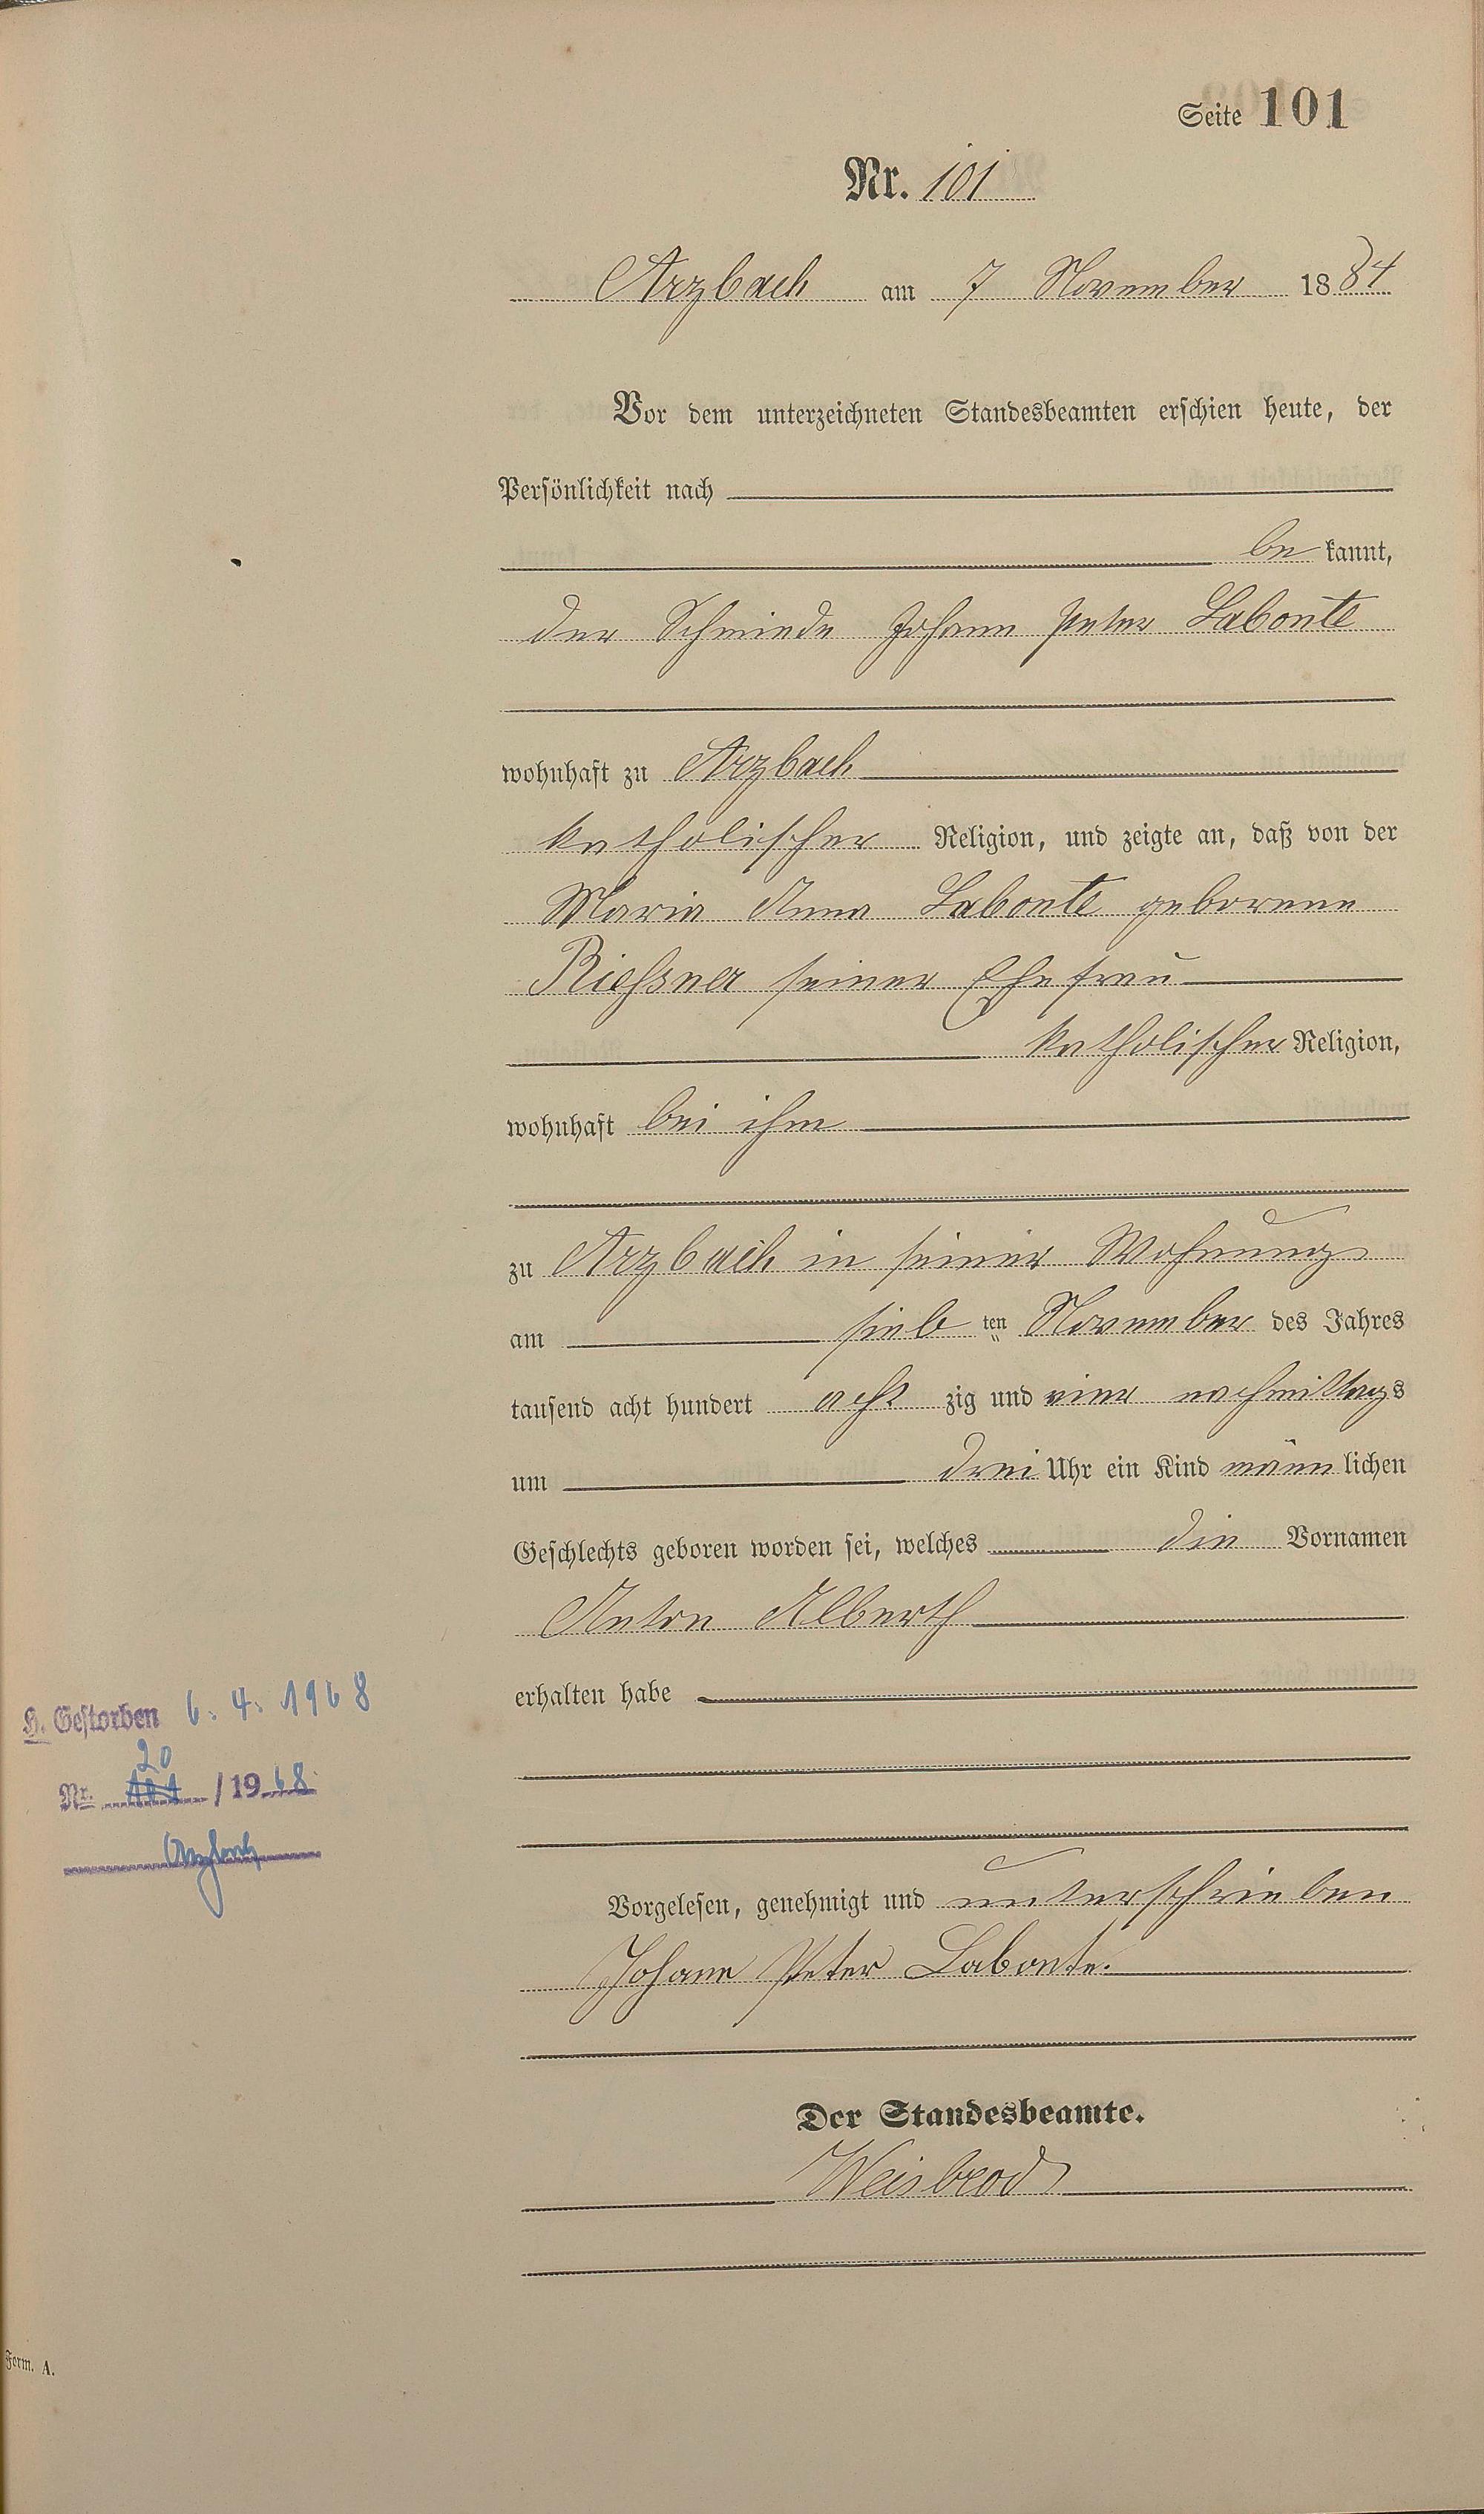 Seite 101
Nr. 101
Arzbach am 7 November 1884
Vor dem unterzeichneten Standesbeamten erschien heute, der
Persönlichkeit nach
be kannt,
der Schmiede Johann Peter Labonte
wohnhaft zu Arzbach
katholischer Religion, und zeigte an, daß von der
Maria Anna Labonte geborene
Riehsner seiner Ehefrau
katholischer Religion,
wohnhaft bei ihm
zu Arzbach in seiner Wohnung
am sieb ten November des Jahres
tausend acht hundert acht zig und vier nachmittags
um drei Uhr ein Kind männ lichen
Geschlechts geboren worden sei, welches die Vornamen
Anton Alberth
erhalten habe
H. Gestorben 6. 4. 1968
20
Nr. 101 / 1968
Arzbach
Vorgelesen, genehmigt und unterschrieben
Johann Peter Labonte.
Der Standesbeamte.
Weisbrod
Form. A.